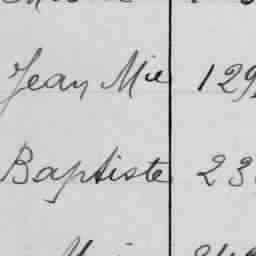 Jean Mie 129
Baptiste 23